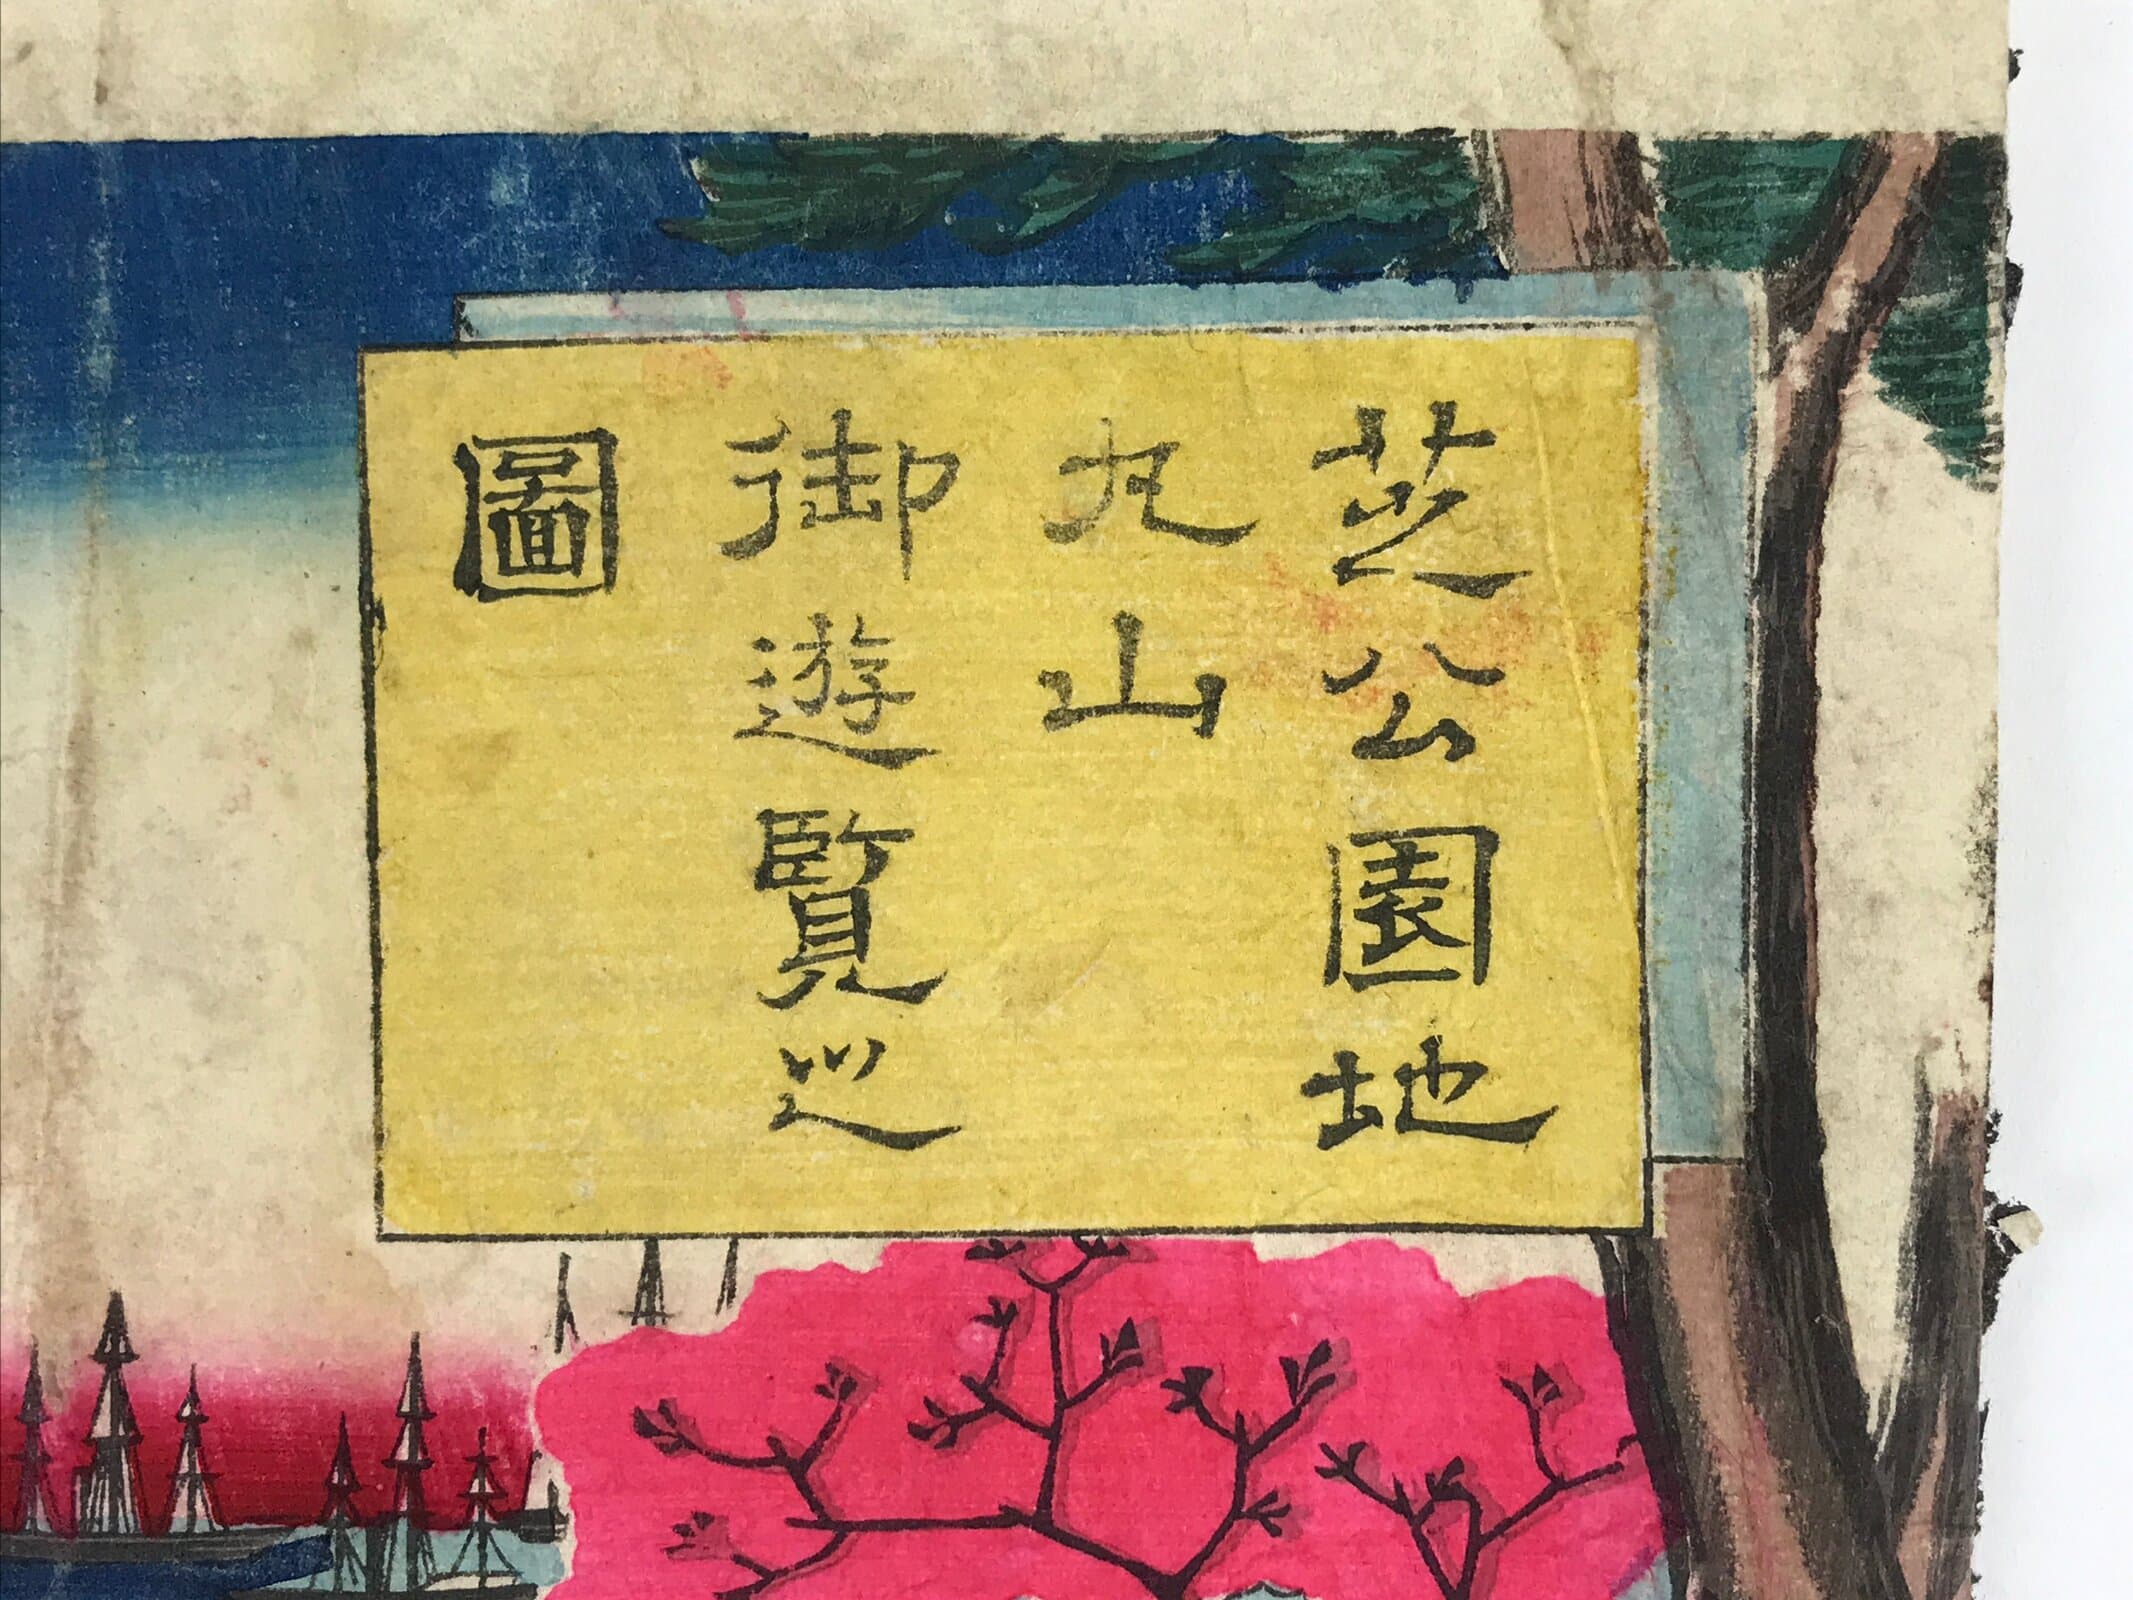 芝公園地
丸山
御遊覧巡
圖